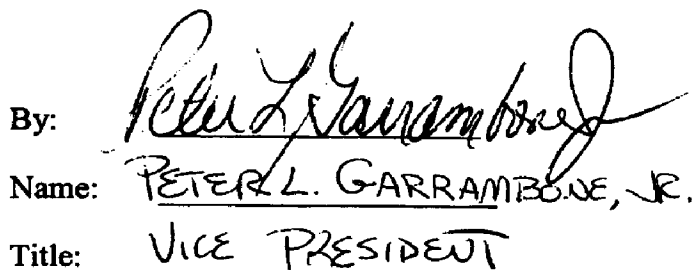 By: Peter L. Garrambone Jr
Name: PETER L. GARRAMBONE, JR.
Title: VICE PRESIDENT